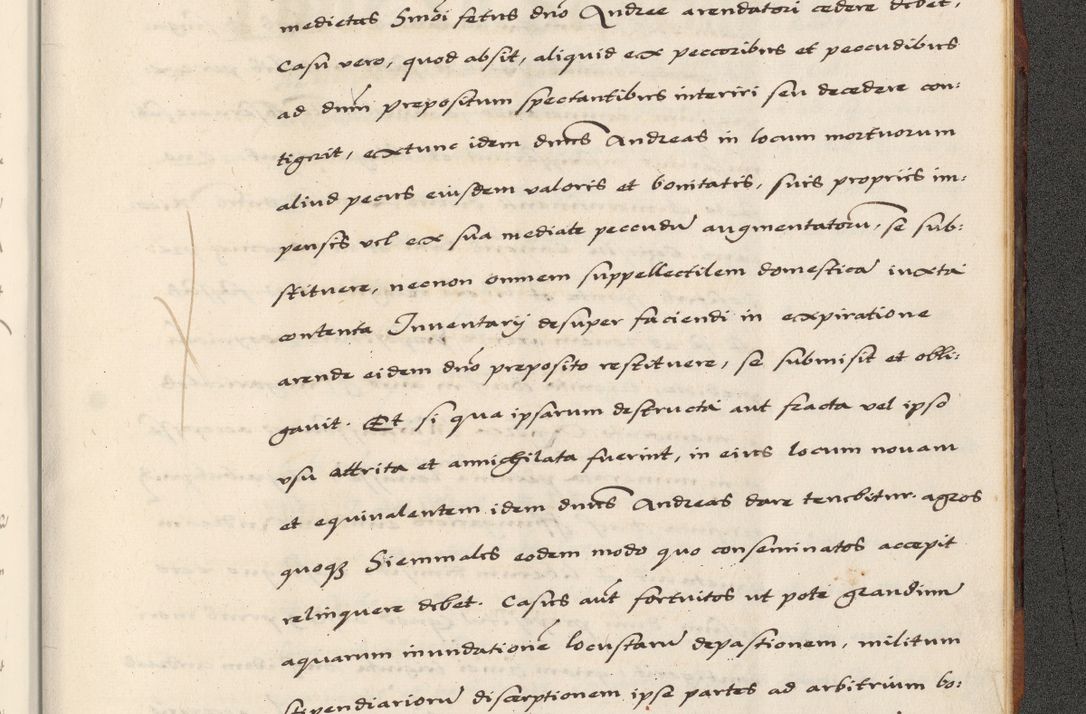 medietas Smoi fetus dno Andree arendatori cedere debet,
Casu vero, quod absit, aliquid ex peccoribus et peccudibus
ad dnum prepositum spectantibus interiri seu decedere con:
tigerit, extunc idem dnus Andreas in locum mortuorum
aliud pecus eiusdem valoris et bonitatis, suis propriis im:
pensis vel ex sua mediate peccudu augmentatoru, se sub:
stituere, necnon omnem suppellectilem domestica iuxta
contenta Inventarij desuper faciendi in expiratione
arende eidem dno preposito restituere, se submisit et obli:
gauit. Et si qua ipsarum destructa aut fracta vel ipso
vsu attrita et annichilata fuerint, in eius locum nouam
et equiualentem idem dnus Andreas dare tenebitur. agros
quoq3 Siemmales eodem modo quo conseminatos accepit
relinquere debet. Casus aut fortuitos ut pote grandinu
aquarum inundatione locustaru depastionem, militum
stipendiarioru discerptionem ipse partes ad arbitrium bo: